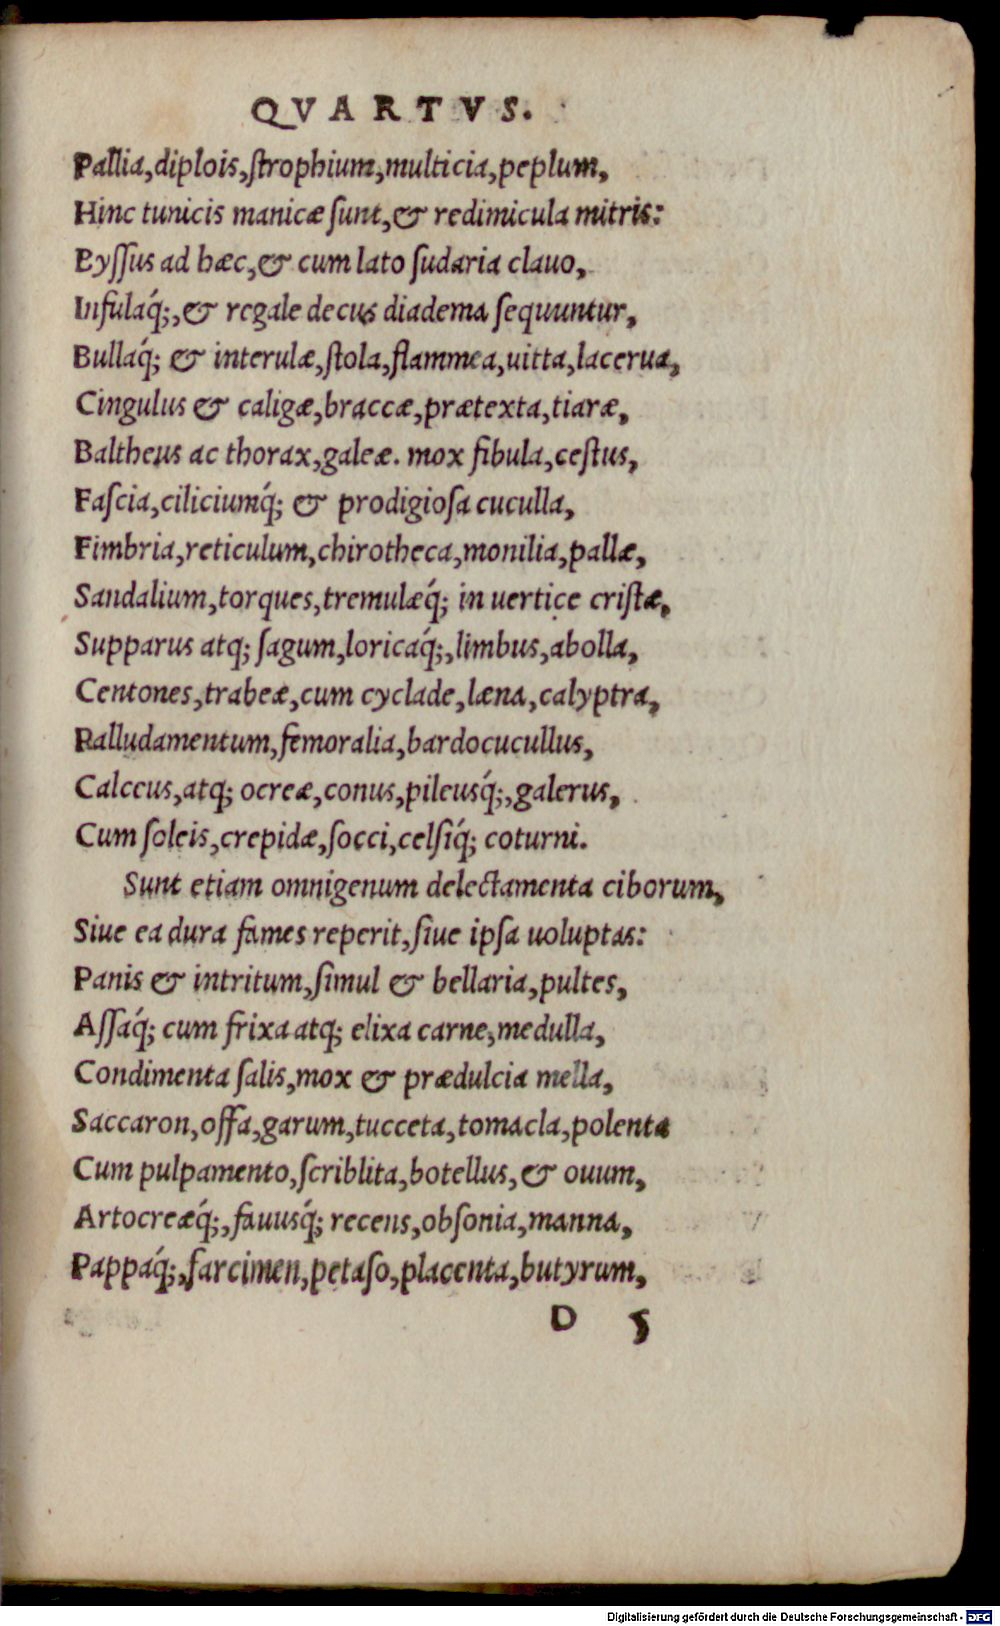 QVARTVS.
Pallia, diplois, ſtrophium, multicia, peplum,
Hinc tunicis manicæ ſunt, & redimicula mitris:
Byſſus ad hæc, & cum lato ſudaria clauo,
Infulaq́;, & regale decus diadema ſequuntur,
Bullaq́; & interulæ, ſtola, flammea, uitta, lacerua,
Cingulus & caligæ, braccæ, prætexta, tiaræ,
Baltheus ac thorax, galeæ. mox fibula, ceſtus,
Faſcia, ciliciumq́; & prodigioſa cuculla,
Fimbria, reticulum, chirotheca, monilia, pallæ,
Sandalium, torques, tremulæq́; in uertice criſtæ,
Supparus atq; ſagum, loricaq́;, limbus, abolla,
Centones, trabeæ, cum cyclade, læna, calyptra,
Palludamentum, femoralia, bardocucullus,
Calceus, atq; ocreæ, conus, pileusq́;, galerus,
Cum ſoleis, crepidæ, ſocci, celſiq́; coturni.
Sunt etiam omnigenum delectamenta ciborum,
Siue ea dura fames reperit, ſiue ipſa uoluptas:
Panis & intritum, ſimul & bellaria, pultes,
Aſſaq́; cum frixa atq; elixa carne, medulla,
Condimenta ſalis, mox & prædulcia mella,
Saccaron, offa, garum, tucceta, tomacla, polenta
Cum pulpamento, ſcriblita, botellus, & ouum,
Artocreæq́;, fauusq́; recens, obſonia, manna,
Pappaq́;, farcimen, petaſo, placenta, butyrum,
D 5
Digitalisierung gefördert durch die Deutsche Forschungsgemeinschaft - DFG